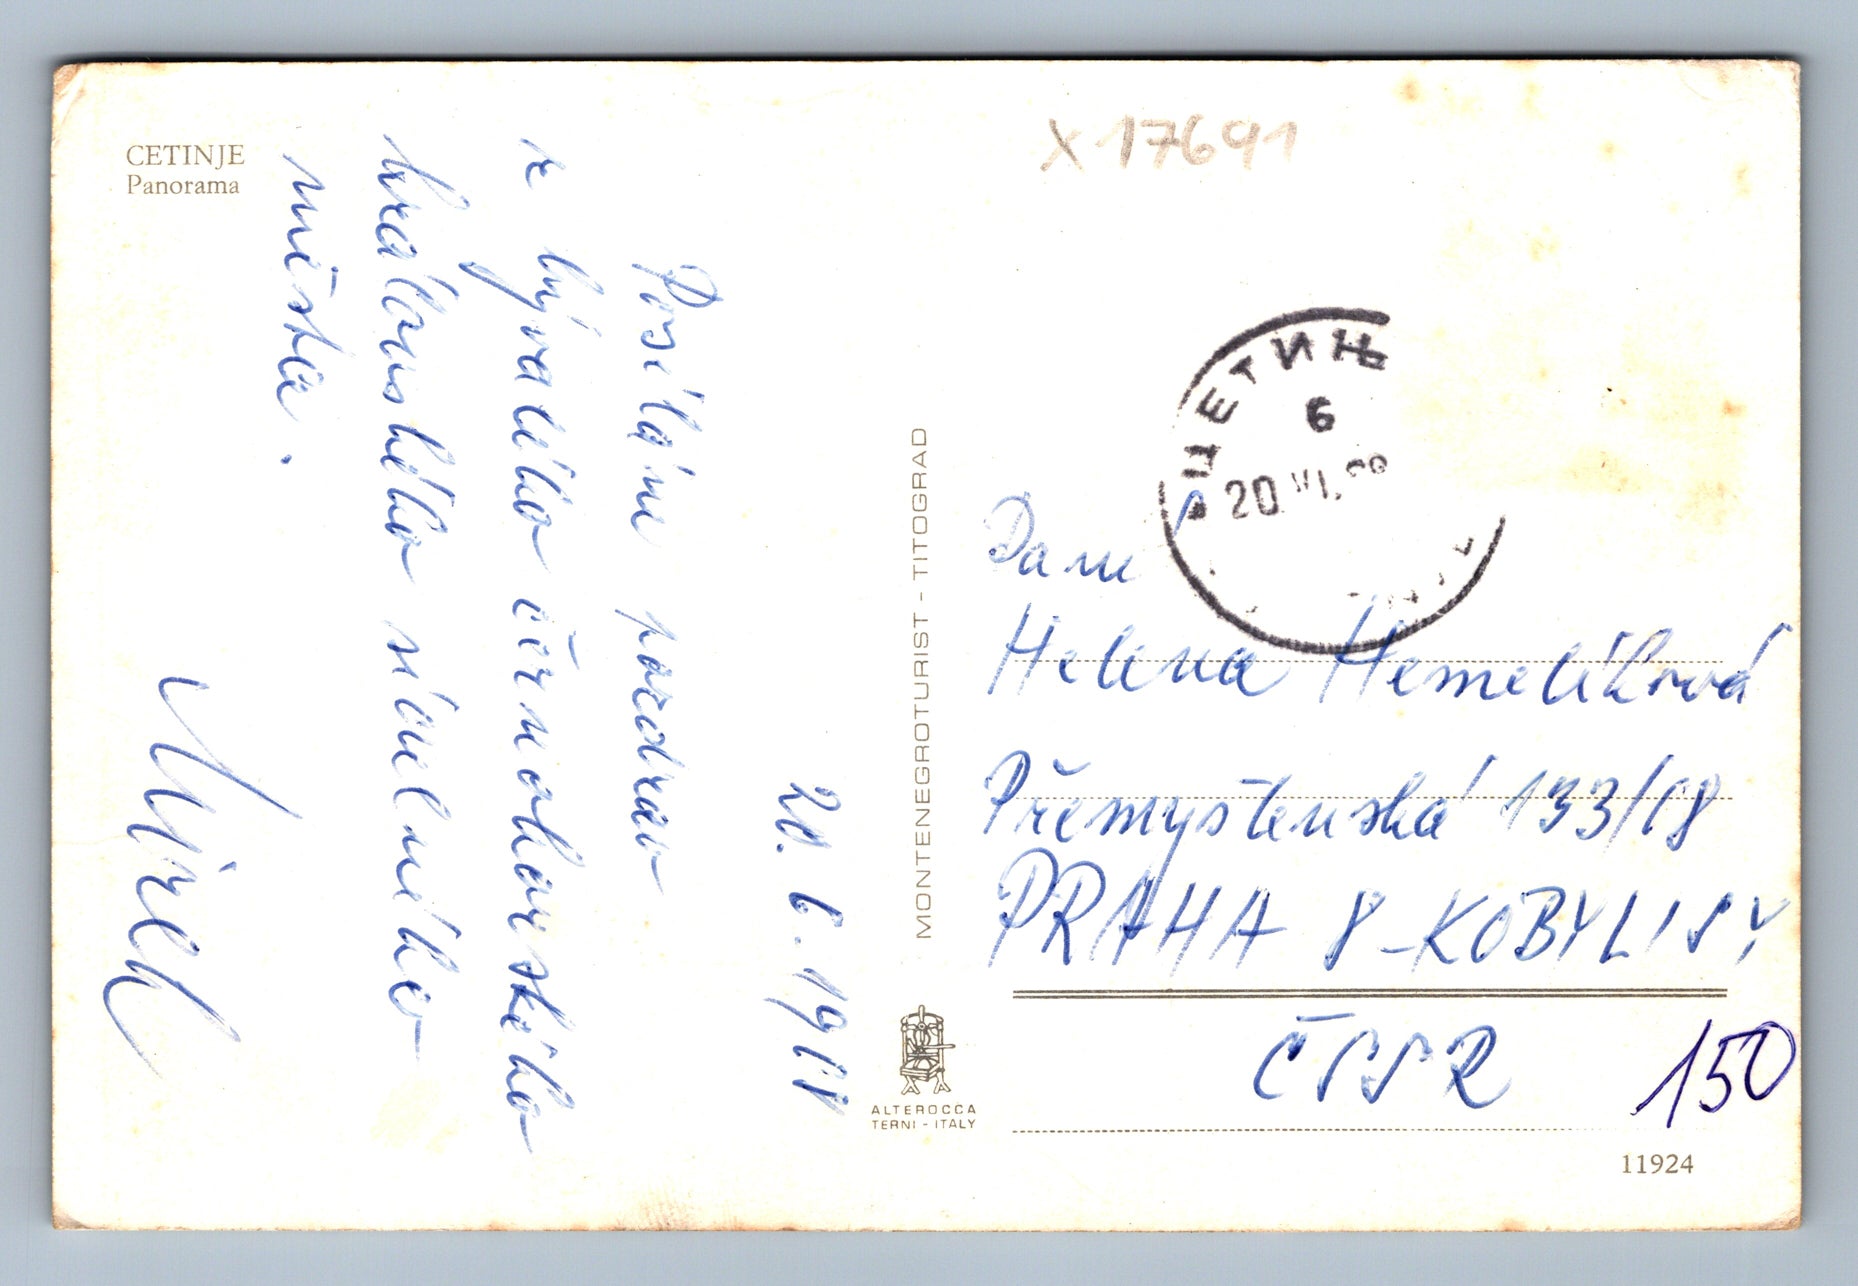 CETINJE
Panorama
20. 6. 1968
Posílám pozdrav
z bývalého černohorského
královského sídelního
města.
Mirek
MONTENEGROTURIST - TITOGRAD
ALTEROCCA
TERNI - ITALY
X 17691
ЦЕТИЊ
6
20 VI. 68
Paní
Helena Hemelíková
Přemyšlenská 133/18
PRAHA 8 - KOBYLISY
ČSSR
150
11924